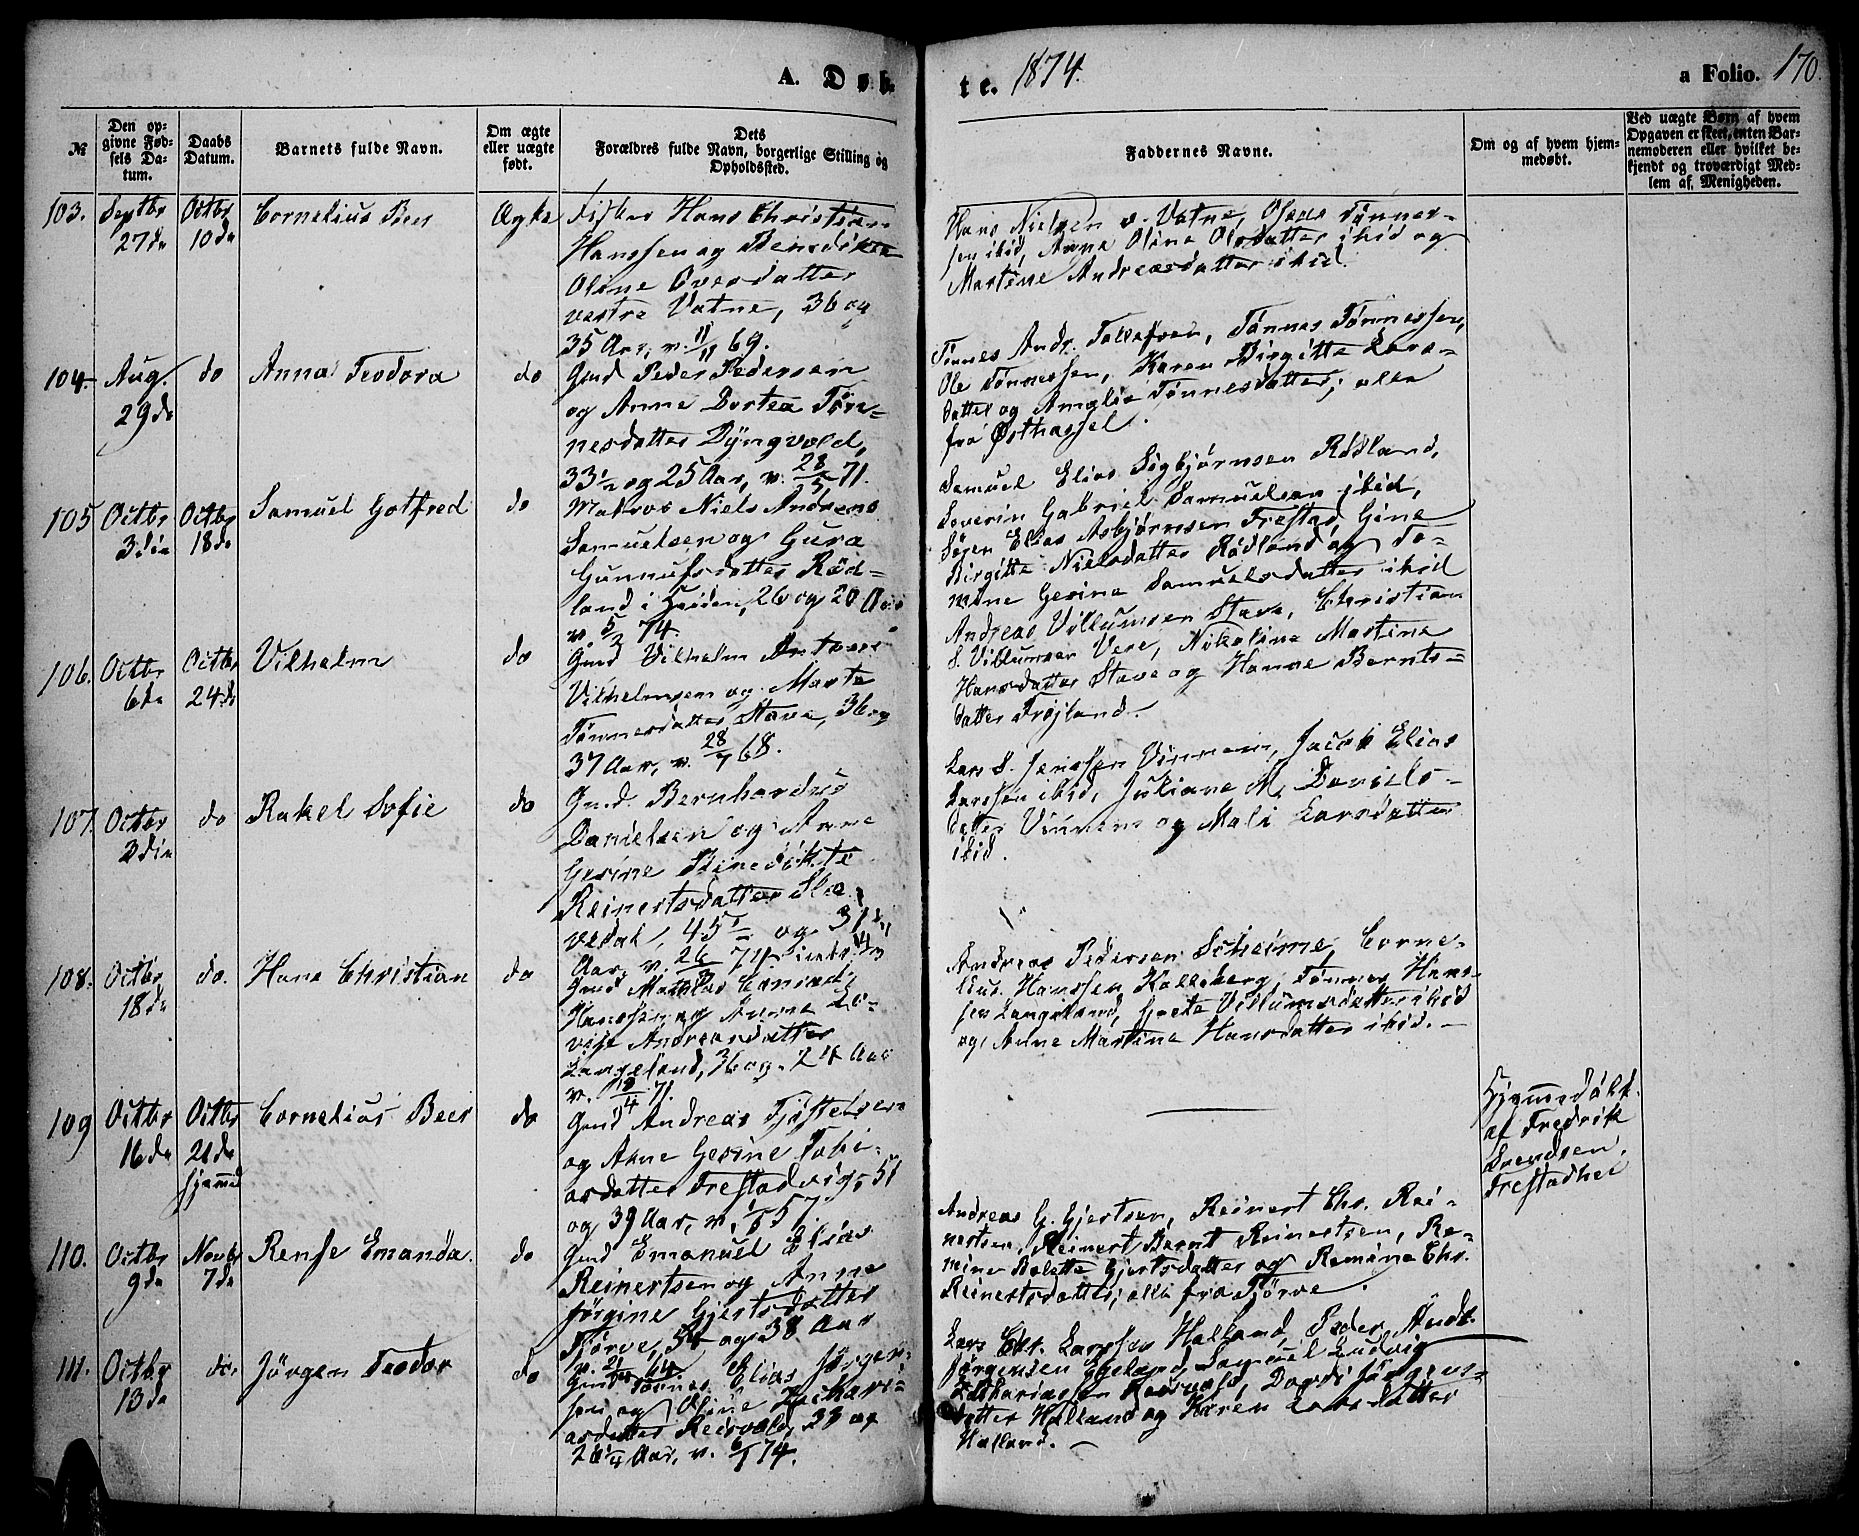 A. Døb-
te. 1874.
a Folio. 170.
№
Den op-
givne Fød-
sels Da-
tum.
Daabs
Datum.
Barnets fulde Navn.
Om ægte
eller uægte
født.
Dets
Forældres fulde Navn, borgerlige Stilling og
Opholdssted.
Faddernes Navne.
Om og af hvem hjem-
medøbt.
Ved uægte Børn af hvem
Opgaven er skeet, enten Bar-
nemoderen eller hvilket be-
kjendt og troværdigt Med-
lem af Menigheden.
103.
Septbr
27de
Octbr
10de
Cornelius Beer
Ægte
Fisker Hans Christian
Hanssen og Bendikte
Oline Ovesdatter
vestre Vatne, 36 og
35 Aar, v. 11/11 69.
Hans Nielsen v. Vatne, Tønnes-
sen ibid, Anna Olina Olsdatter ibid og
Martine Andreasdatter ibid.
104.
Aug.
29de
do
Anna Teodora
do
Gmd Peder Pedersen
og Anne Dortea Tøn-
nesdatter Dyngvold,
33½ og 25 Aar, v. 28/5 71.
Tønnes Andr. Tollefsen, Tønnes Tønnessen,
Ole Tønnessen, Karen Birgitte Lars-
datter og Amalie Tønnesdatter; alle
fra Østhassel.
105
Octbr
3die
Octbr
18de
Samuel Gotfred
do
Matros Niels Andreas
Samuelsen og Gura
Gunnufsdatter Rød-
land i Heiden, 26 og 20 Aar
v. 5/2 74.
Samuel Elias Sigbjørnsen Rødland,
Severin Gabriel Samuelsen ibid,
Søren Elias Asbjørnsen Trestad, Gine
Birgitte Nielsdatter Rødland og To-
mine Gesine Samuelsdatter ibid
106.
Octbr
6de
Octbr
24de
Vilhelm
do
Gmd Vilhelm Antoni
Vilhelmsen og Marte
Tønnesdatter Stave, 36 og
37 Aar, v. 28/7 68.
Andreas Villumsen Stave, Christian
S. Villumsen Vere, Nikoline Martine
Hansdatter Stave og Hanne Bernts-
datter Frøjland.
107.
Octbr
3die
do
Rakel Sofie
do
Gmd. Bernhardus
Danielsen og Anne
Gesine Benedikte
Reinertsdatter Sle-
vedal, 45 og 31
Aar, v. 26/3 71
Lars S. Jenssen Vinnem, Jacob Elias
Larssen ibid, Juliane M. Daniels-
datter Vinnem og Mali Larsdatter
ibid.
108.
Octbr
18de
do.
Hans Christian
do
Gmd Mathias
Hanssen og Anne Lo-
vise Andreasdatter
Langeland, 36 og 24 Aar
v. 12/4 71.
Andreas Pedersen Scheime, Corne-
lius Hanssen Kalleberg, Tønnes Hans-
sen Langeland, Grete Villumsdatter ibid
og Anne Martine Hansdatter ibid. —
109
Octbr
16de
Octbr
21de
hjemme
Cornelius Beer
do
Gmd Andreas Tjøstelsen
og Anne Gesine Tobi-
asdatter Trestadvig, 51
og 39 Aar, v. 57.
Hjemmedøbt
af Fredrik
Svendsen
Trestadhei
110.
Octbr
9de
Novbr
7de
Rense Emanda.
do
Gmd Emanuel Elias
Reinertsen og Anne
Jørgine Gjertsdatter
Tjørve, 54 og 38 Aar
Andreas G. Gjertsen, Reinert Chr. Rei-
nertsen, Reinert Bernt Reinertsen, Re-
mine Bolette Gjertsdatter og Remine Chr.
Reinertsdatter; alle fra Tjørve.
111.
Octbr
13de
do.
Jørgen Teodor
do
Gmd Tønnes Elias Jørgen-
sen og Oline Zachari-
asdatter Reisvold, 23 og
26¼ Aar, v. 6/1 74.
Lars Chr. Larssen Halland, Peder Andr.
Jørgensen Egeland, Samuel Ludvig
Zachariassen Reisvold, Dordi Jørgens-
datter Halland og Karen Larsdatter
Halland. —